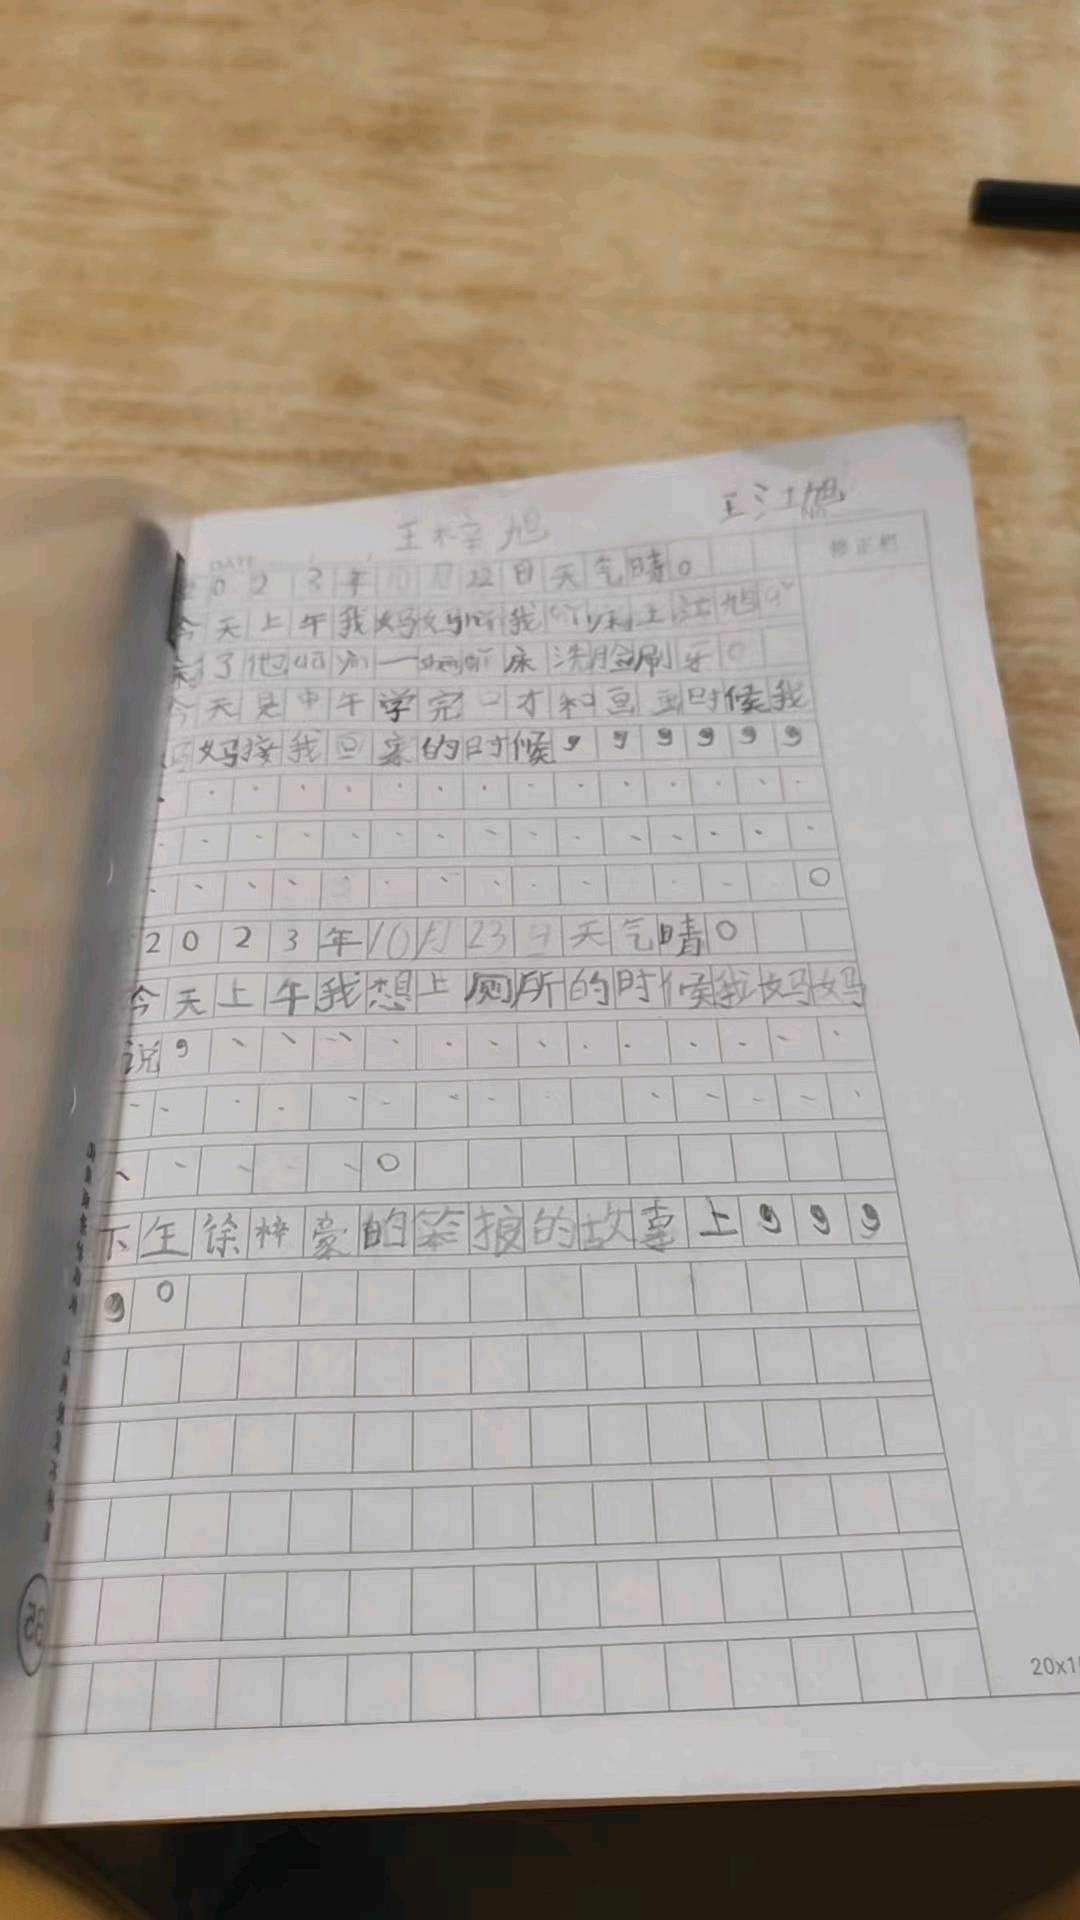 王梓旭 王江旭
DATE
修正栏
2023年10月22日天气晴。
今天上午我妈妈 我 上江旭
了他 一 床洗脸刷牙。
今天是中午学完口才和画画时候我
妈妈接我回家的时候,,,,,,
、、、、、、、、、、、、、、、
、、、、、、、、、、、、、、、
、、、、、、、、、、、、、、。
2023年10月23日天气晴。
今天上午我想上厕所的时候我妈妈
说,、、、、、、、、、、、、、
、、、、、、、、、、、、、
、、、、、。
下午徐梓豪的 的故事上,,,
,。
20x1